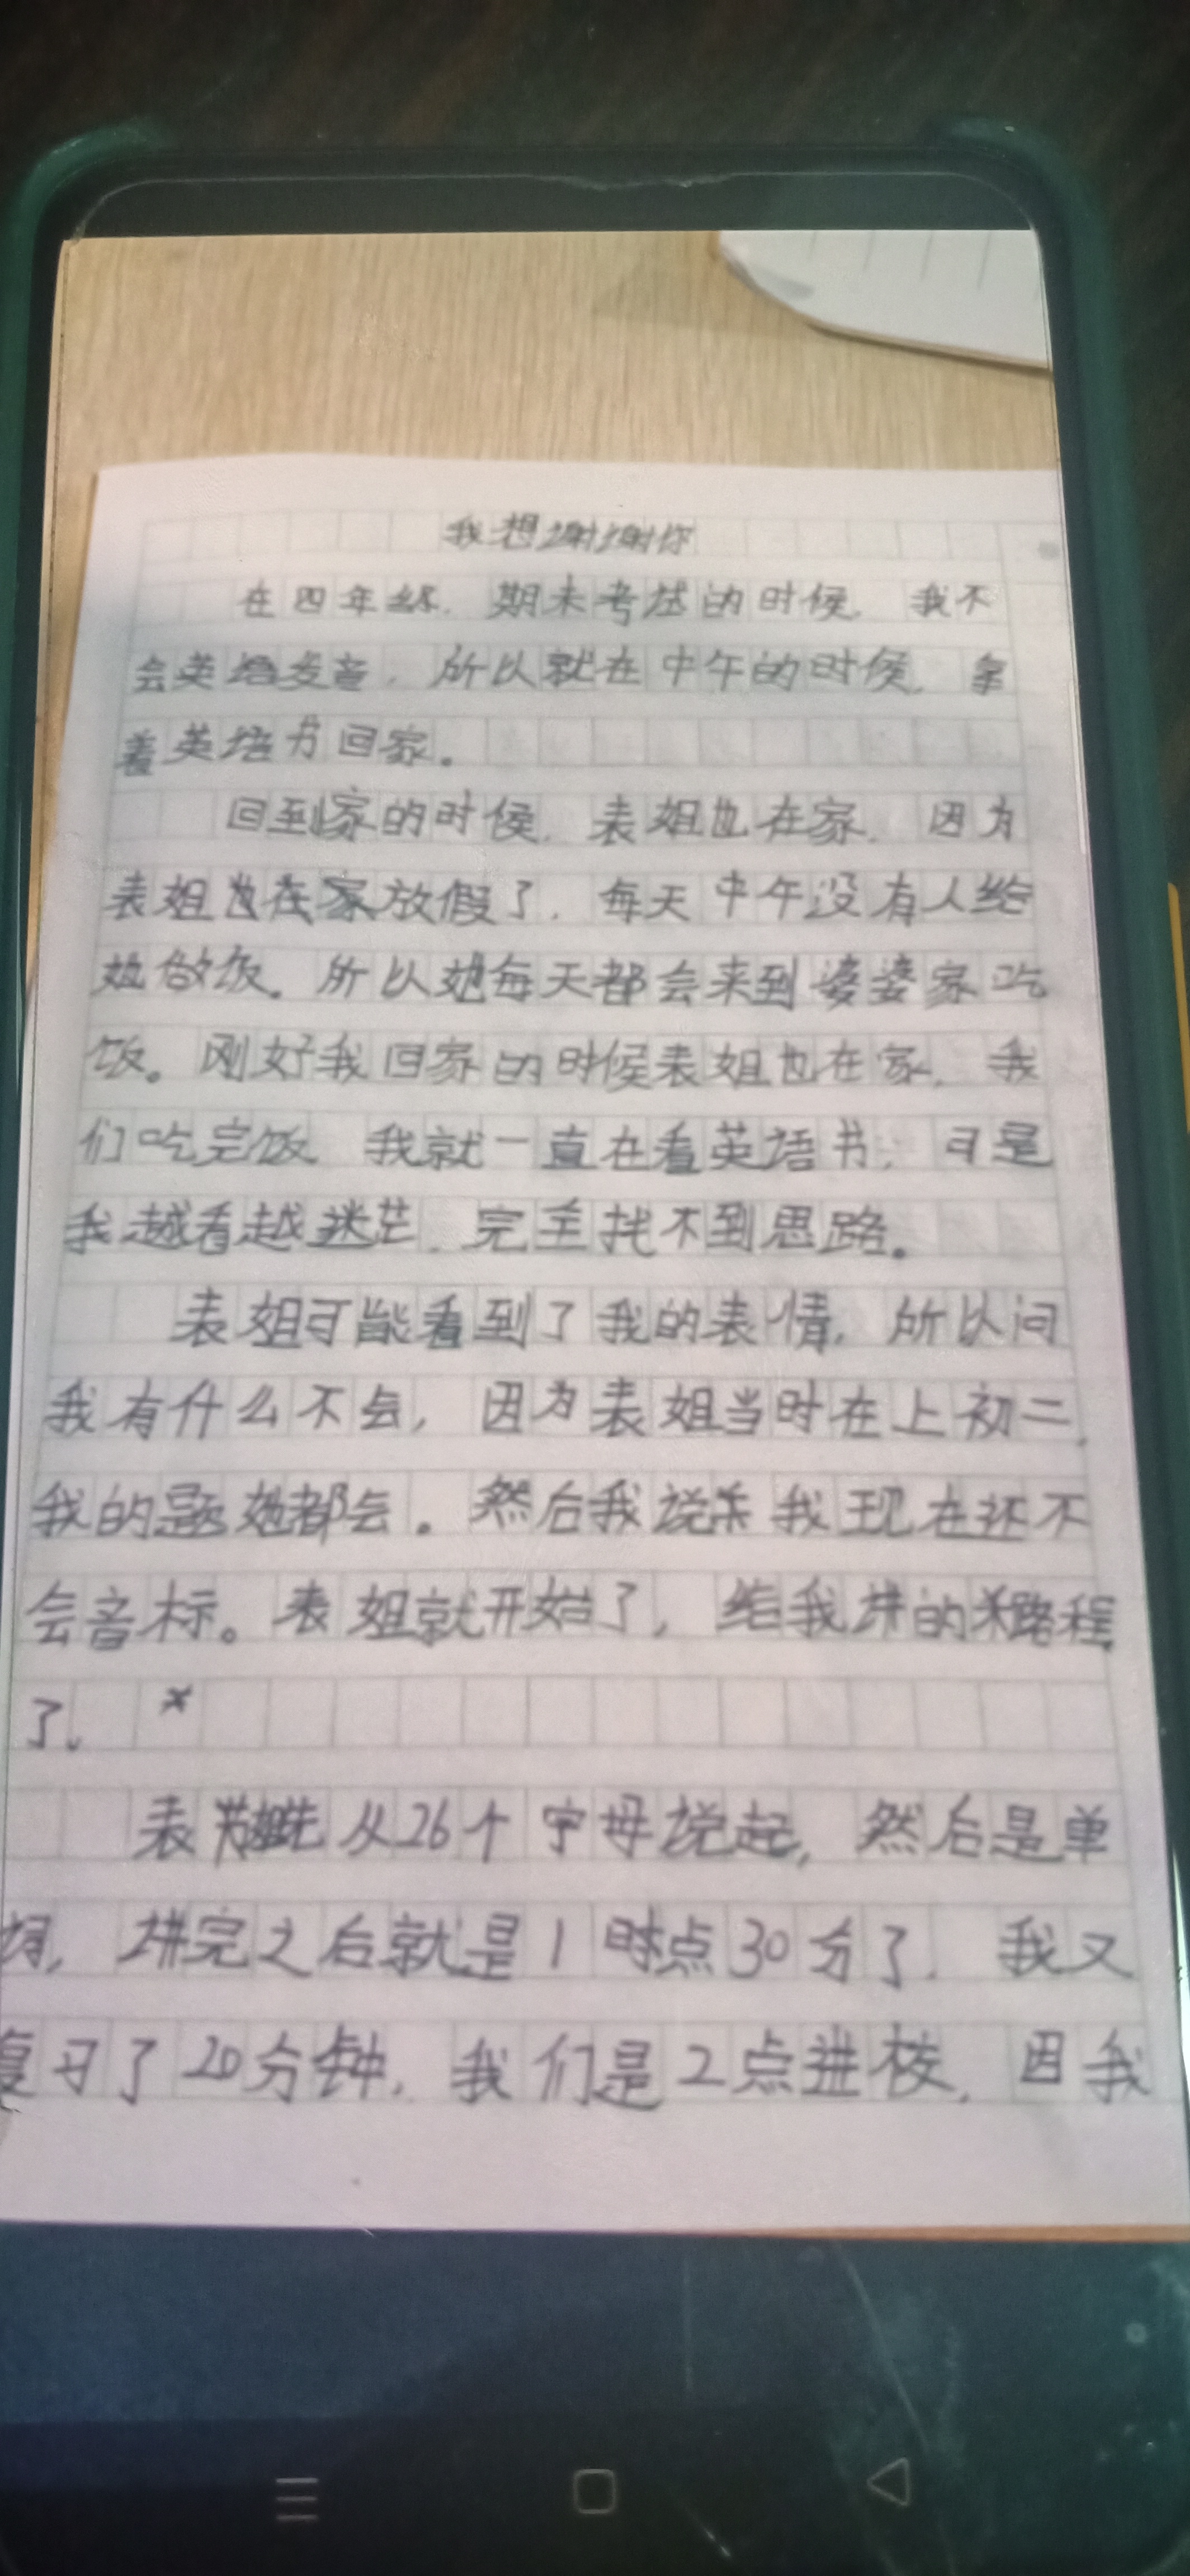 我想谢谢你
在四年级,期末考试的时候,我不
会英语发音,所以就在中午的时候,拿
着英语书回家。
回到家的时候,表姐也在家,因为
表姐也在家放假了,每天中午没有人给
她做饭。所以她每天都会来到婆婆家吃
饭。刚好我回家的时候表姐也在家,我
们吃完饭 我就一直在看英语书,可是
我越看越迷茫,完全找不到思路。
表姐可能看到了我的表情,所以问
我有什么不会,因为表姐当时在上初二,
我的题她都会。然后我说 我现在还不
会音标。表姐就开始了,给我讲的 路程
了。
表 姐先从26个字母说起,然后是单
词,讲完之后就是1 点30分了,我又
复习了20分钟,我们是2点进校,因我